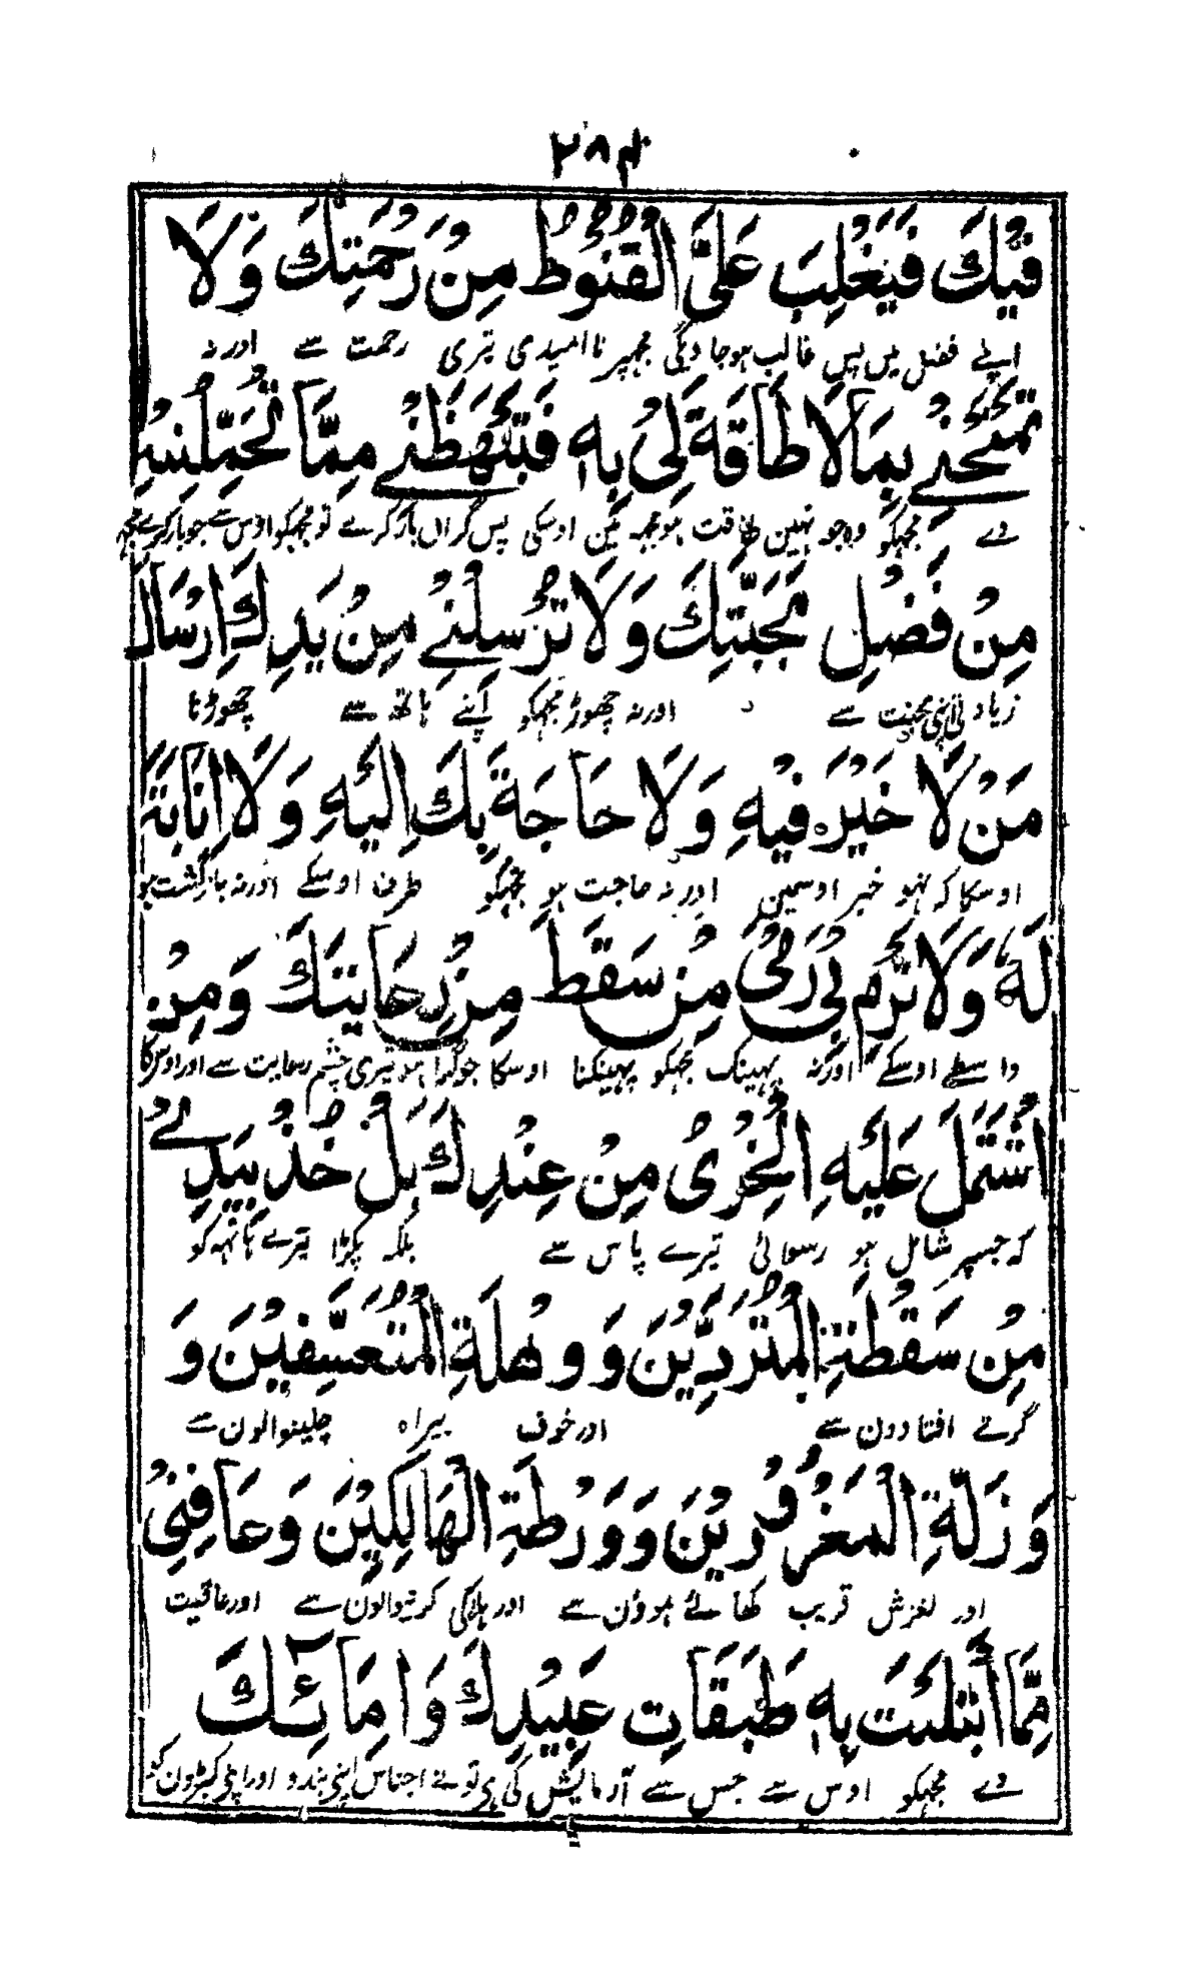 ۲۸۴
فِيْكَ فَيَغْلِبَ عَلَيَّ الْقُنُوْطُ مِنْ رَحْمَتِكَ وَلَا
اپنے فضل میں پس غالب ہو جاویگی مجھپر ناامیدی تیری رحمت سے اور نہ
تَمْنَحْنِيْ بِمَا لَا طَاقَةَ لِيْ بِهٖ فَتَبْهَظَنِيْ مِمَّا تُحَمِّلُنِيْهِ
دے مجہکو وہ جو نہین طاقت ہو مجہ مین اوسکی پس گراں بار کرے تو مجہکو اوس سے جو بار کرے
مِنْ فَضْلِ مَحَبَّتِكَ وَلَا تُرْسِلْنِيْ مِنْ يَدِكَ اِرْسَالَ
زیادتی اپنی محبت سے اور نہ چھوڑ مجہکو اپنے ہاتھ سے چھوڑنا
مَنْ لَا خَيْرَ فِيْهِ وَلَا حَاجَةَ بِكَ اِلَيْهِ وَلَا اِنَابَةَ
اوسکا کہ نہو خیر اوسمین اور نہ حاجت ہو تجہکو طرف اوسکے اور نہ بازگشت ہو
لَهٗ وَلَا تَرْمِ بِيْ رَمْيَ مَنْ سَقَطَ مِنْ رِعَايَتِكَ وَمَنِ
واسطے اوسکے اور نہ پہینک مجہکو پہینکنا اوسکا جو گرا ہو تیری چشم رعایت سے اور اوسکا
اشْتَمَلَ عَلَيْهِ الْخِزْيُ مِنْ عِنْدِكَ بَلْ خُذْ بِيَدِيْ
کہ جسپر شامل ہو رسوائی تیرے پاس سے بلکہ پکڑا تیرے ہاتہہ کو
مِنْ سَقْطَةِ الْمُتَرَدِّيْنَ وَوَهْلَةِ الْمُتَعَسِّفِيْنَ وَ
گرتے افتادون سے اور خوف بیراہ چلینوالون سے
وَزَلَّةِ الْمَغْرُوْرِيْنَ وَوَرْطَةِ الْهَالِكِيْنَ وَعَافِنِيْ
اور لغزش فریب کھائے ہوؤن سے اور ہلاکی کرنیوالون سے اور عافیت
مِمَّا ابْتَلَيْتَ بِهٖ طَبَقَاتِ عَبِيْدِكَ وَاِمَائِكَ
دے مجہکو اوس سے جس سے آزمایش کی ہی تونے اجناس اپنی بندو اور اپنی کنیزون کو